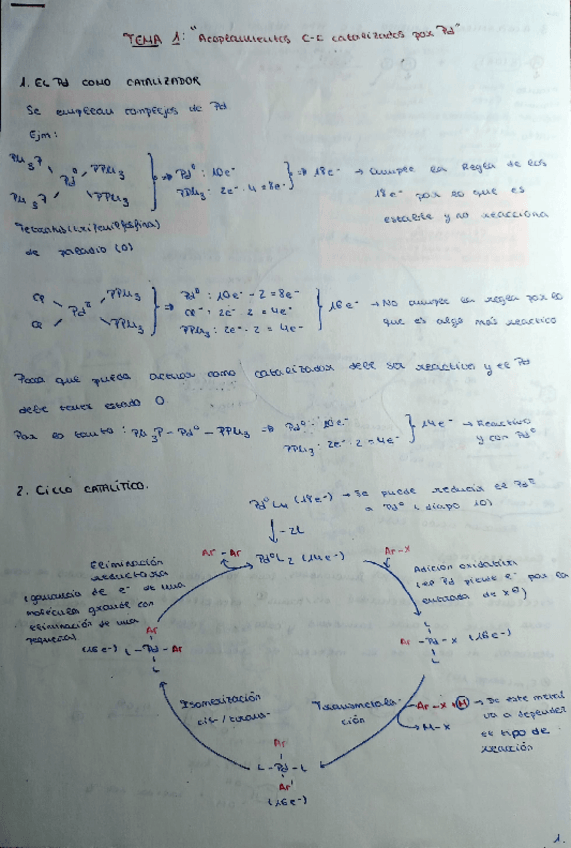 TEMA 1: "Acoplamientos C-C catalizados por Pd"
1. EL Pd COMO CATALIZADOR
Se emplean complejos de Pd
Ejm:
Ph3P PPh3
Pd⁰ ⇒ Pd⁰: 10e⁻ ⇒ 18e⁻ → Cumple la Regla de los
PPh3: 2e⁻·4 = 8e⁻ 18e⁻ por lo que es
Ph3P PPh3 estable y no reacciona
Tetrakis(trifenilfosfina)
de paladio (0)
Cl PPh3 ⇒ Pd⁰: 10e⁻ - 2 = 8e⁻
Pd^II Cl⁻: 2e⁻·2 = 4e⁻ 16e⁻ → No cumple la regla por lo
Cl PPh3 PPh3: 2e⁻·2 = 4e⁻ que es algo más reactivo
Para que pueda actuar como catalizador debe ser reactivo y el Pd
debe tener estado 0
Por lo tanto: Ph3P-Pd⁰-PPh3 ⇒ Pd⁰: 10e⁻ 14e⁻ → Reactivo
PPh3: 2e⁻·2 = 4e⁻ y con Pd⁰
2. CICLO CATALÍTICO.
Pd⁰L4 (18e⁻) → Se puede reducir el Pd^II
a Pd⁰ (diapo 10)
-2L
Ar-Ar Pd⁰L2 (14e⁻) Ar-X
Eliminación
reductora
(ganancia de e⁻ de una
molécula grande con
eliminación de una
pequeña)
Adición oxidativa
(el Pd pierde e⁻ por la
entrada de X⊖)
Ar
(16e⁻) L-Pd-Ar
L
L
Ar-Pd-X (16e⁻)
L
Isomerización
cis-/trans-
Transmetala-
ción
Ar-X M → De este metal
va a depender
el tipo de
reacción
M-X
Ar
L-Pd-L
Ar'
(16e⁻)
1.